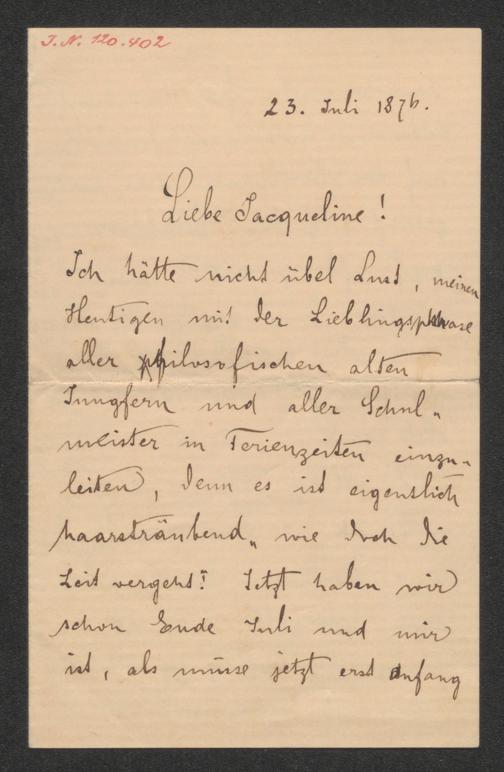 I.N. 120.402
23. Juli 1876.
Liebe Jacqueline!
Ich hätte nicht übel Lust, meinen
Heutigen mit der Lieblingsphrase
aller philosofischen alten
Jungfern und aller Schul„
meister in Ferienzeiten einzu„
leiten, denn es ist eigentlich
haarsträubend„ wie doch die
Zeit vergeht!" Jetzt haben wir
schon Ende Juli und mir
ist, als müsse jetzt erst Anfang